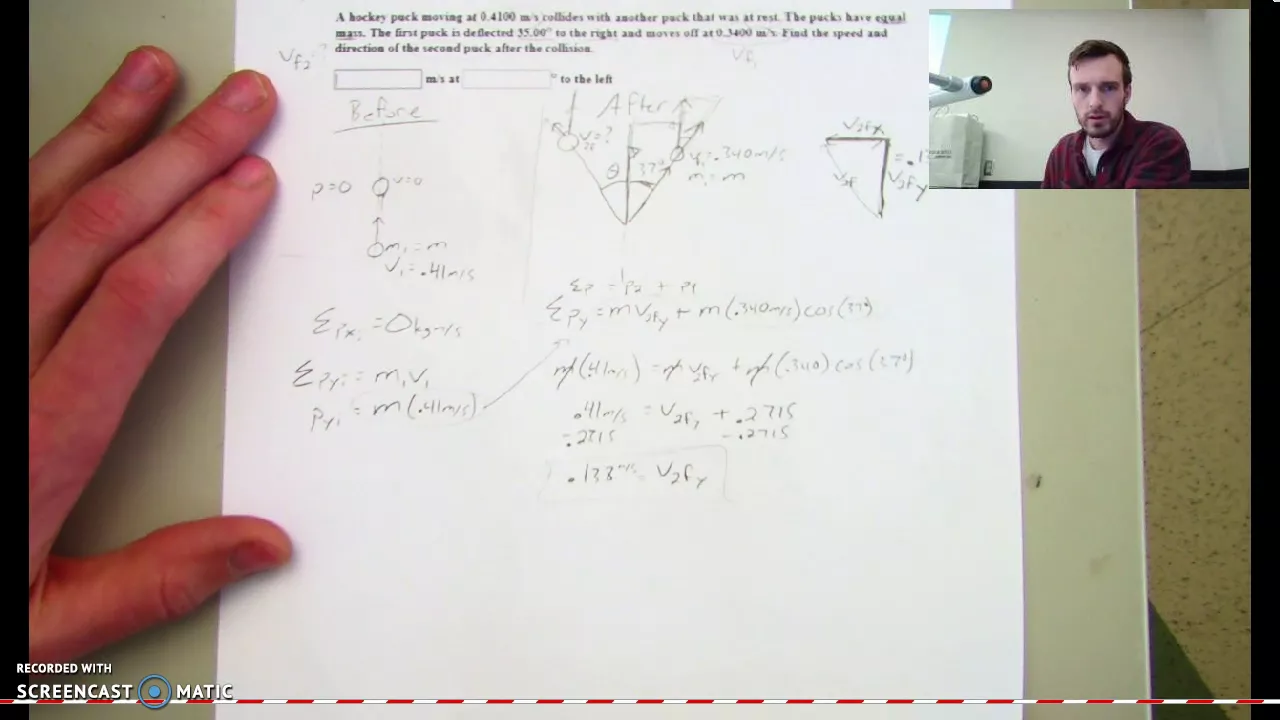 A hockey puck moving at 0.4100 m/s collides with another puck that was at rest. The pucks have equal
mass. The first puck is deflected 35.00° to the right and moves off at 0.3400 m/s. Find the speed and
direction of the second puck after the collision.
Vf2 = ?
Vf1
m/s at ° to the left
Before
After
p=0
v=0
m1 = m
V1 = .41m/s
V2f=?
θ
37°
V1=.340m/s
m1 = m
V2fx
V2f
V2fy
= .1
Σp = p2 + p1
Σpy = mV2fy + m(.340m/s)cos(37°)
Σpxi = 0kgm/s
Σpyi = m1V1
pyi = m(.41m/s)
m(.41m/s) = mV2fy + m(.340)cos(37°)
.41m/s = V2fy + .2715
-.2715 -.2715
.138m/s = V2fy
RECORDED WITH
SCREENCAST MATIC